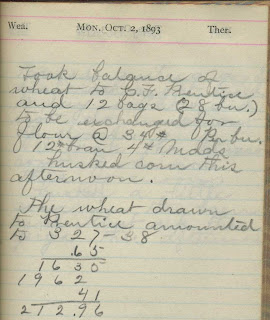 Wea. Mon. Oct. 2, 1893 Ther.
Took balance of
wheat to C. F. Prentice
and 12 bags (28 bu.)
to be exchanged for
flour @ 34# Pr bu.
12# bran, 4# Midds
Husked corn this
afternoon.
The wheat drawn
to Prentice amounted
to 327-38
.65
1635
1962
41
212.96